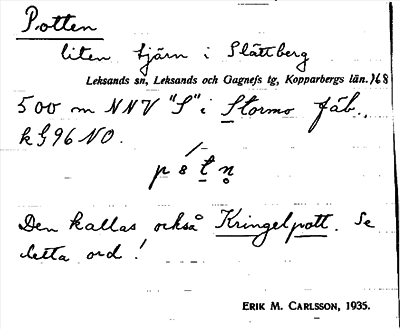 Potten
liten tjärn i Slättberg
Leksands sn, Leksands och Gagnefs tg, Kopparbergs län. 168
500 m NNV "S" i Stormo fäb.,
k G 96 NO.
p 8 t n
Den kallas också Kringelpott. Se
detta ord!
ERIK M. CARLSSON, 1935.